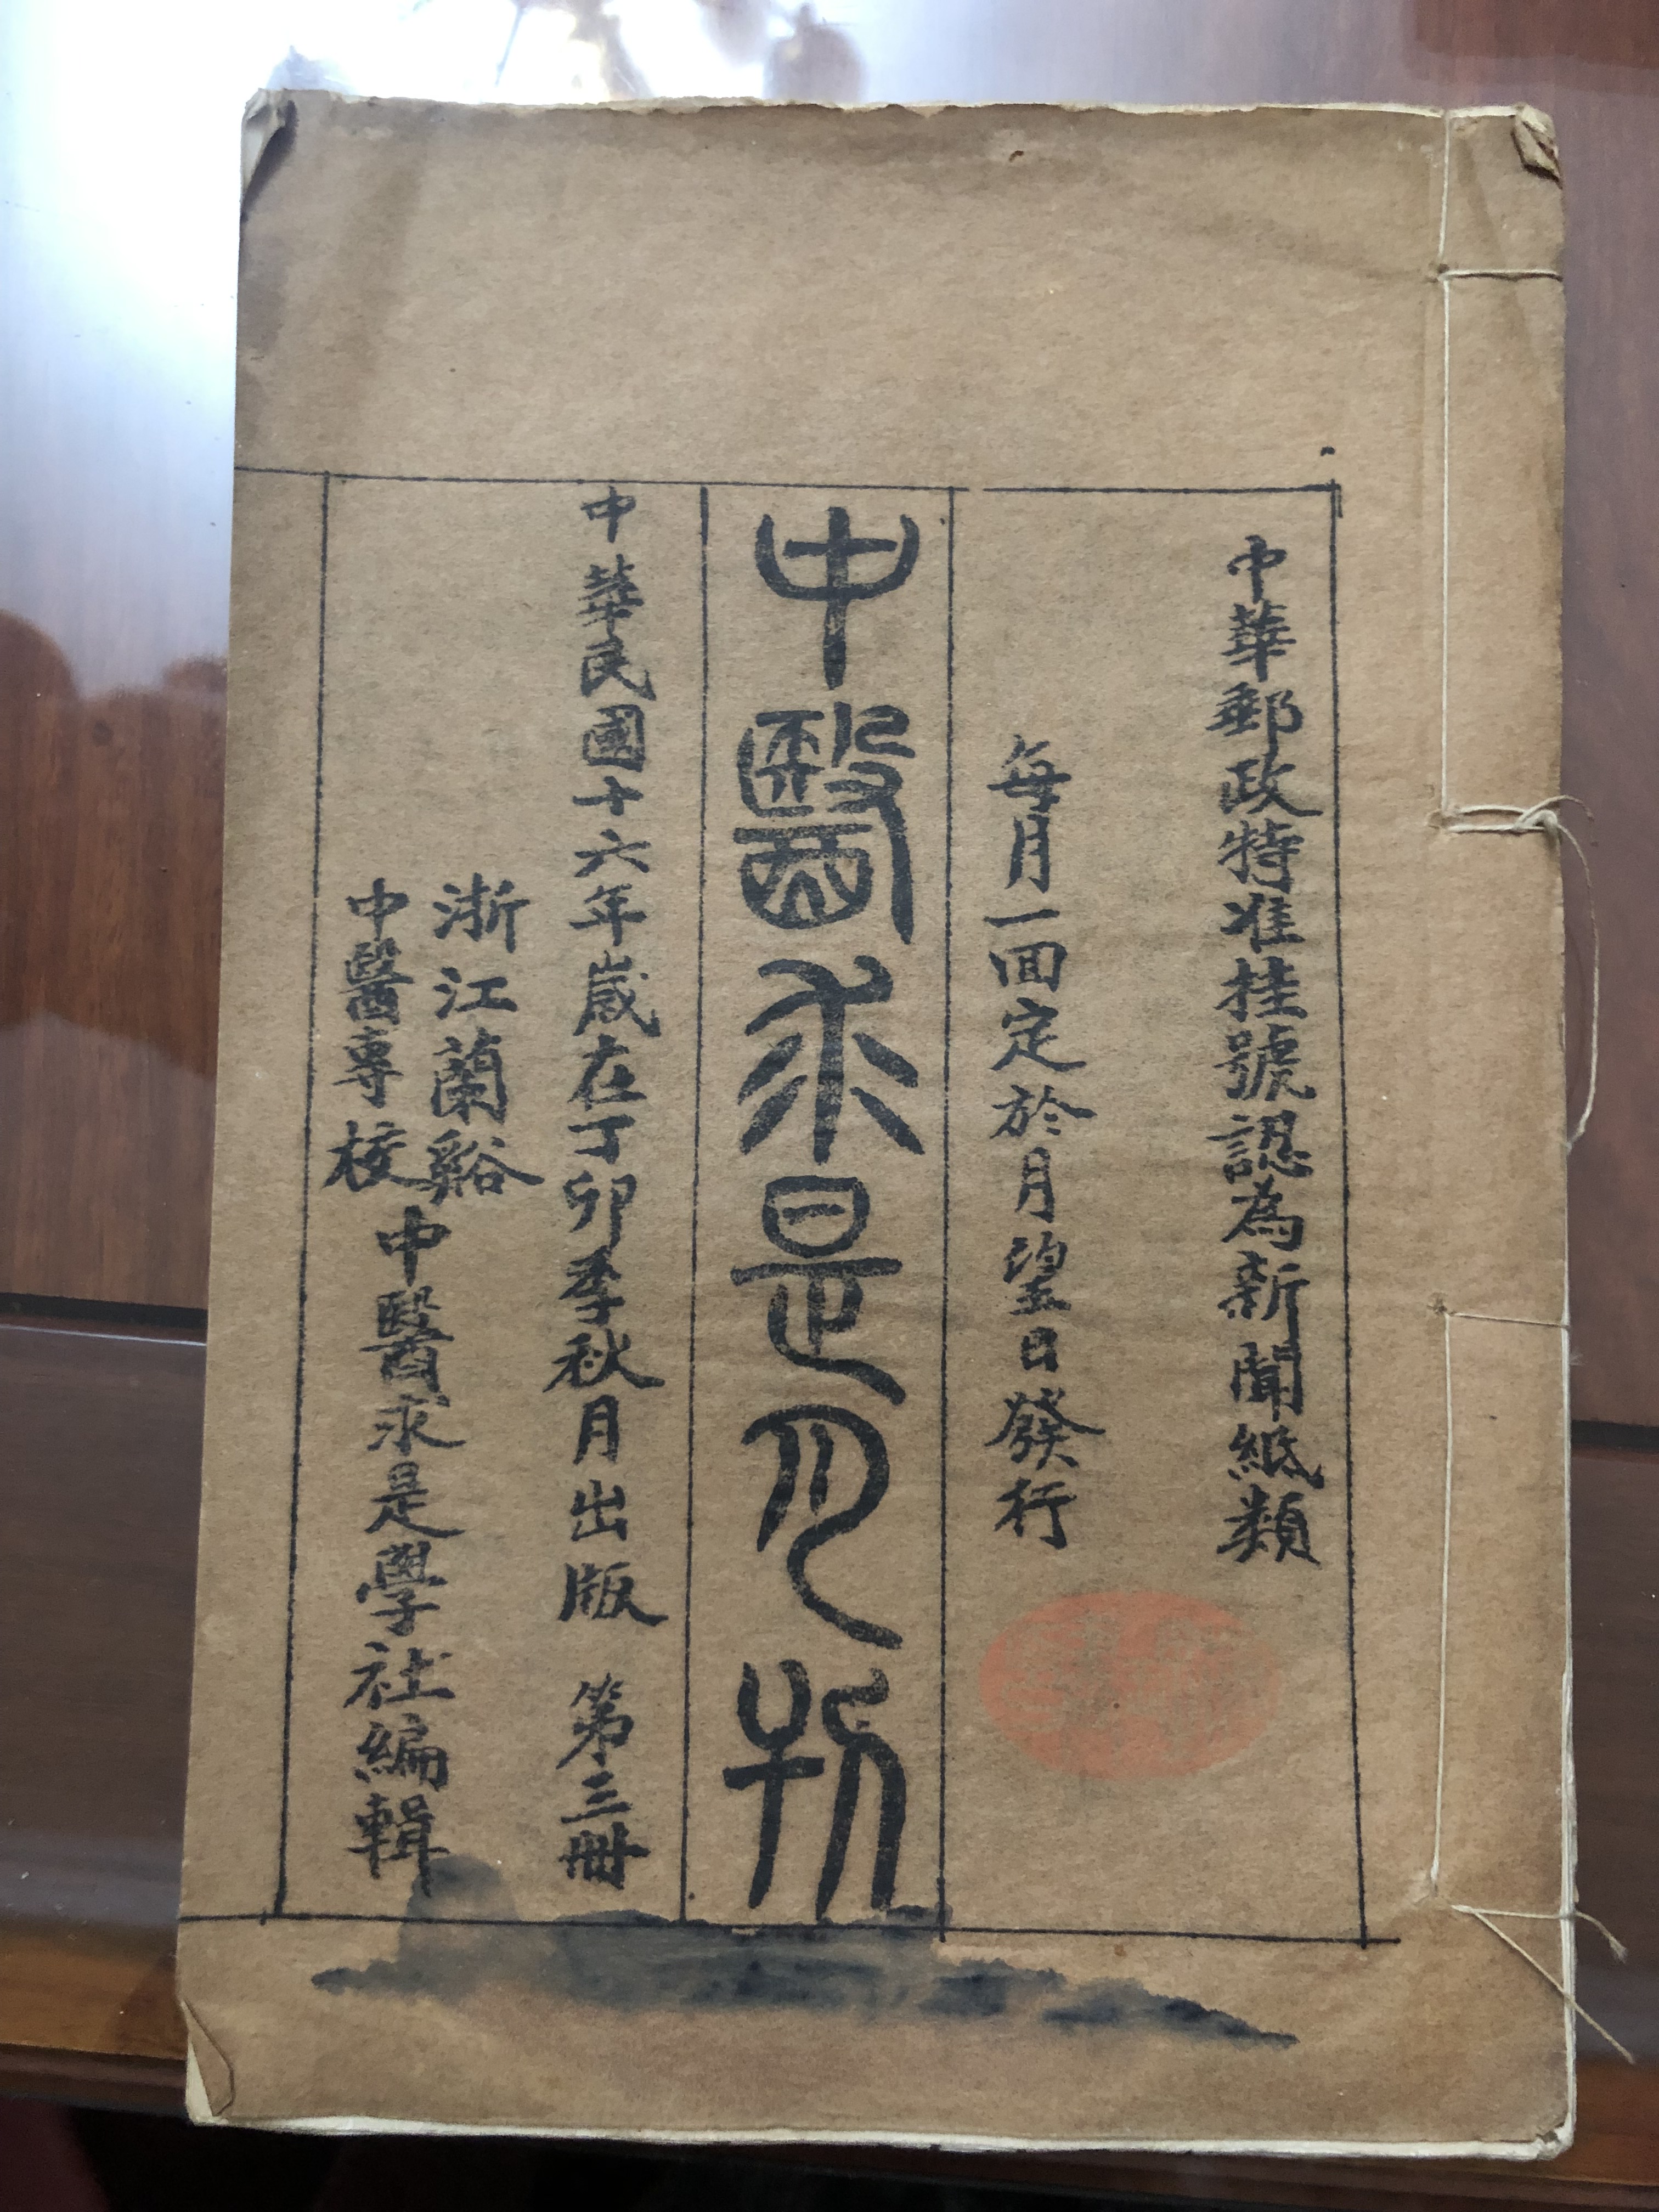 中華郵政特准挂號認為新聞紙類
每月一回定於月望日發行
中醫求是月刊
中華民國十六年歲在丁卯季秋月出版 第三冊
浙江蘭谿
中醫專校
中醫求是學社編輯